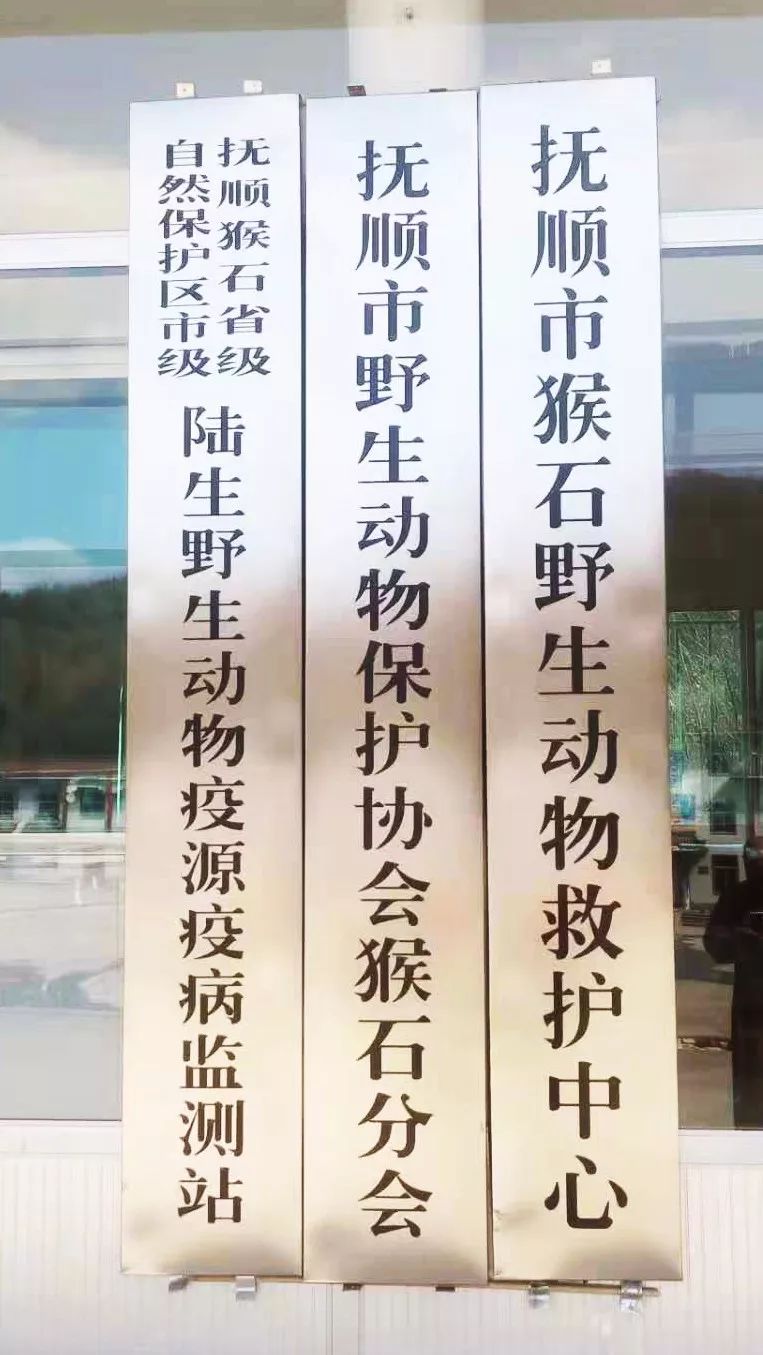 抚顺市猴石野生动物救护中心
抚顺市野生动物保护协会猴石分会
抚顺猴石省级
自然保护区市级
陆生野生动物疫源疫病监测站